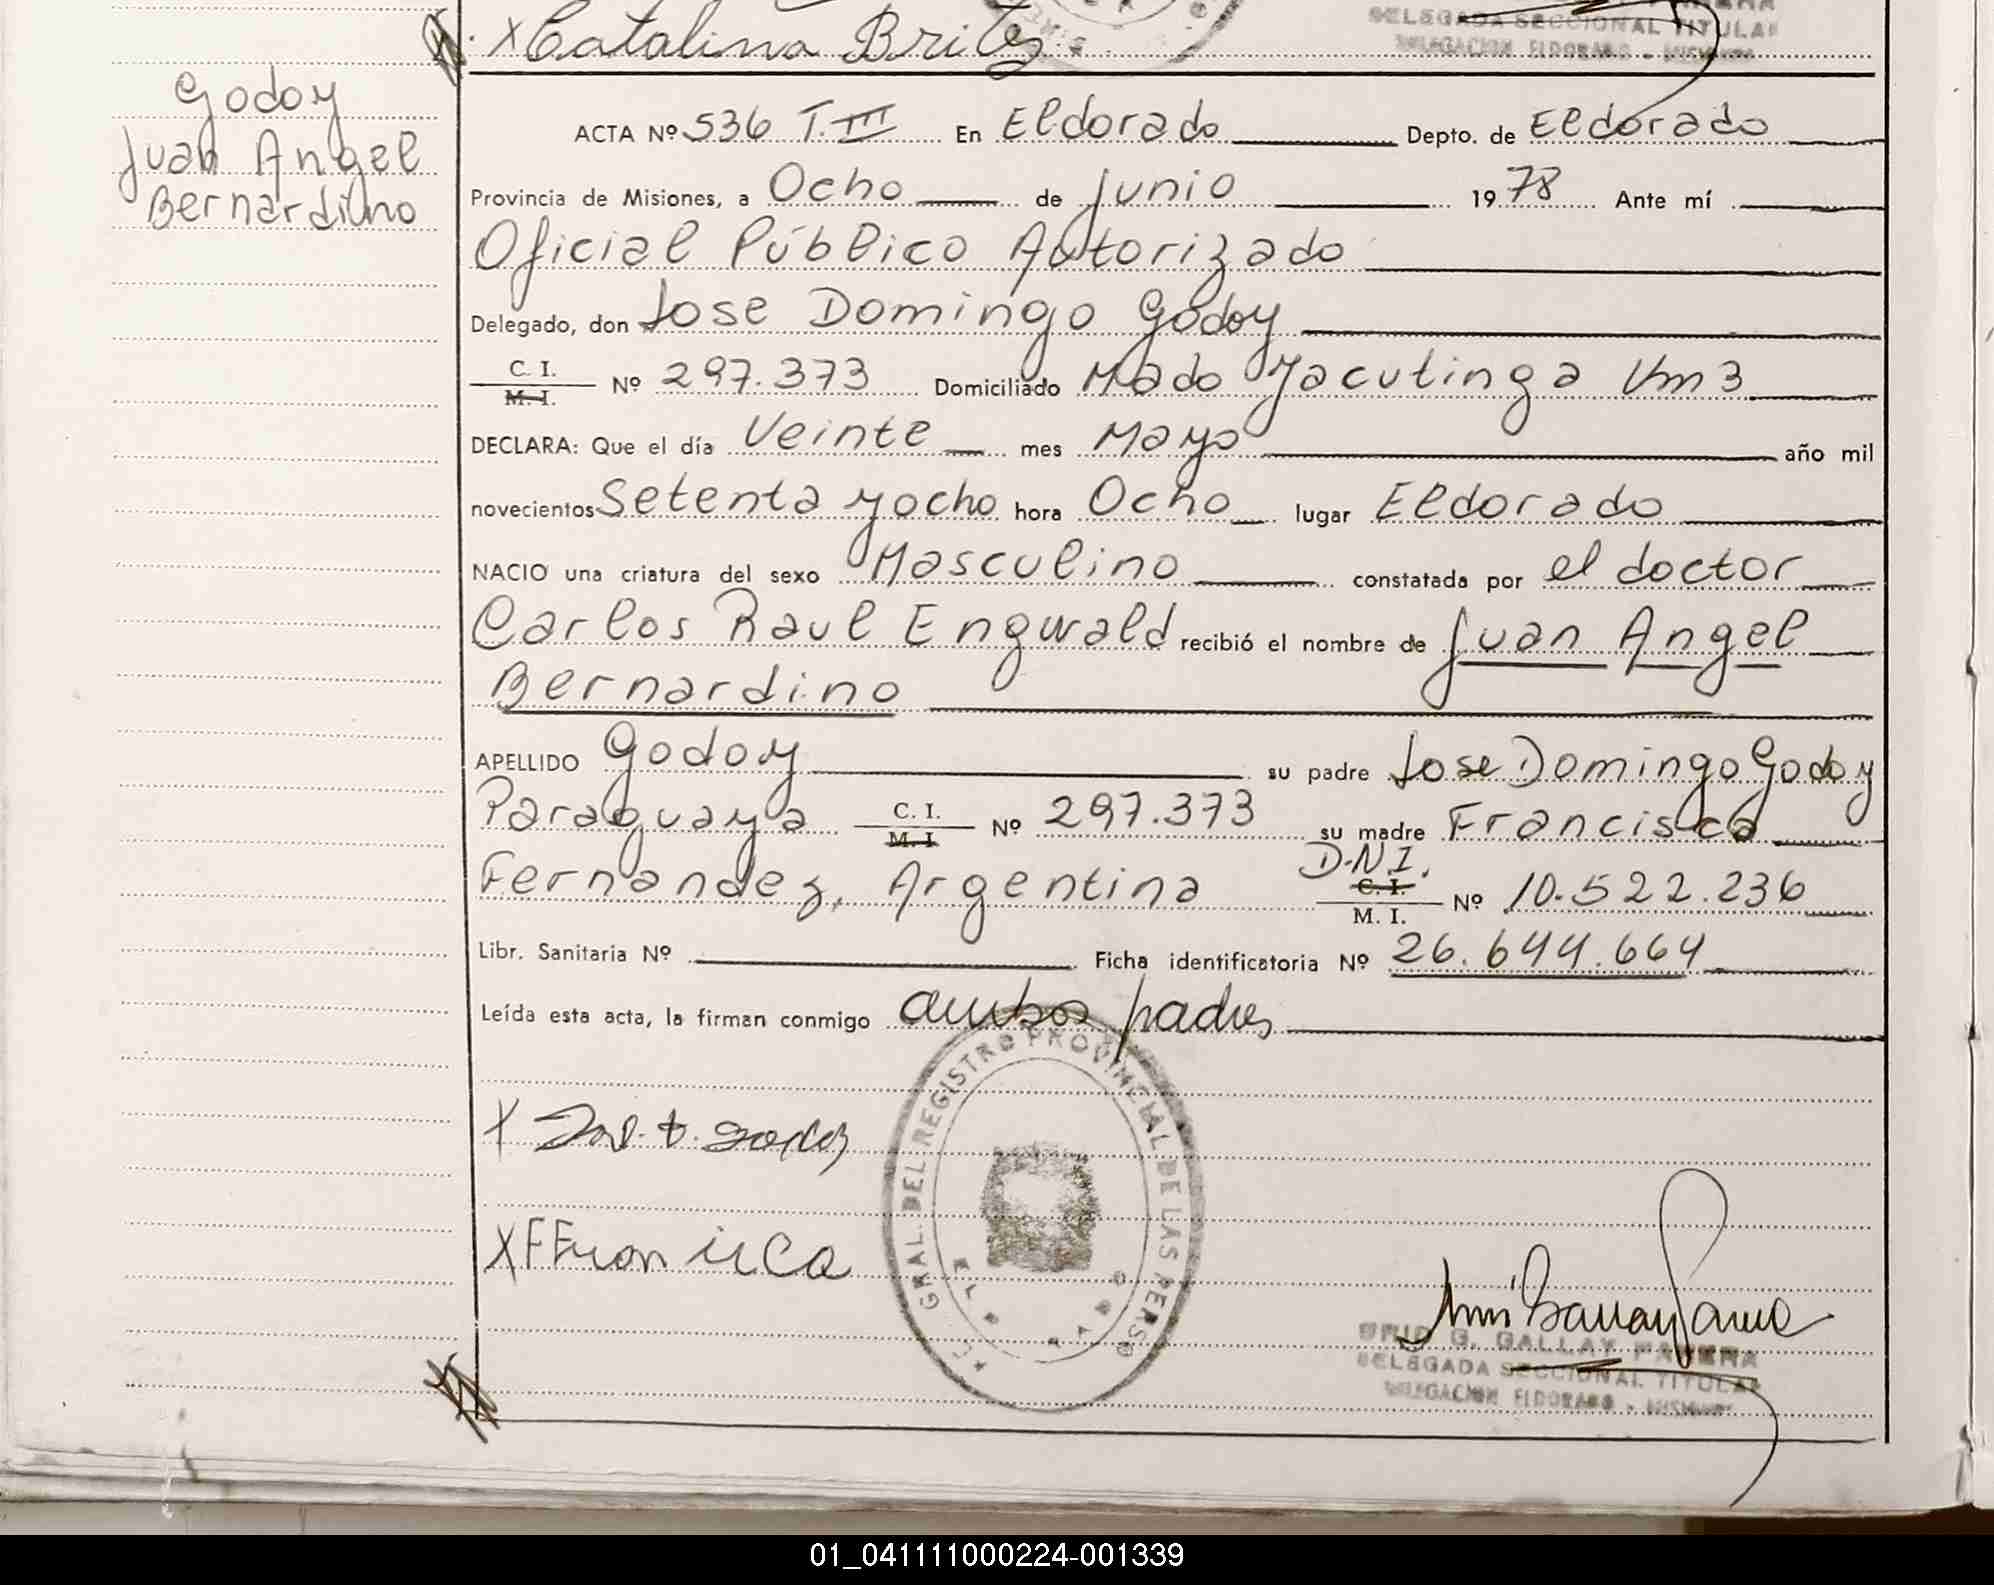 x Catalina Brites
DELEGADA SECCIONAL TITULAR
DELEGACION ELDORADO - MISIONES
Godoy
Juan Angel
Bernardino
ACTA Nº 536 T.III En Eldorado Depto. de Eldorado
Provincia de Misiones, a Ocho de Junio 1978 Ante mí
Oficial Público Autorizado
Delegado, don Jose Domingo Godoy
C. I.
M. I. Nº 297.373 Domiciliado Mado Yacutinga Km 3
DECLARA: Que el día Veinte mes Mayo año mil
novecientos Setenta y ocho hora Ocho lugar Eldorado
NACIO una criatura del sexo Masculino constatada por el doctor
Carlos Raul Engwald recibió el nombre de Juan Angel
Bernardino
APELLIDO Godoy su padre Jose Domingo Godoy
Paraguaya C. I. M. I. Nº 297.373 su madre Francisca
Fernandez, Argentina D.N.I. C. I. M. I. Nº 10.522.236
Libr. Sanitaria Nº Ficha identificatoria Nº 26.644.664
Leída esta acta, la firman conmigo ambos padres
GRAL. DEL REGISTRO PROVINCIAL DE LAS PERSO
X
X F Francisca
G. GALLAY
DELEGADA SECCIONAL TITULAR
DELEGACION ELDORADO - MISIONES
01_041111000224-001339